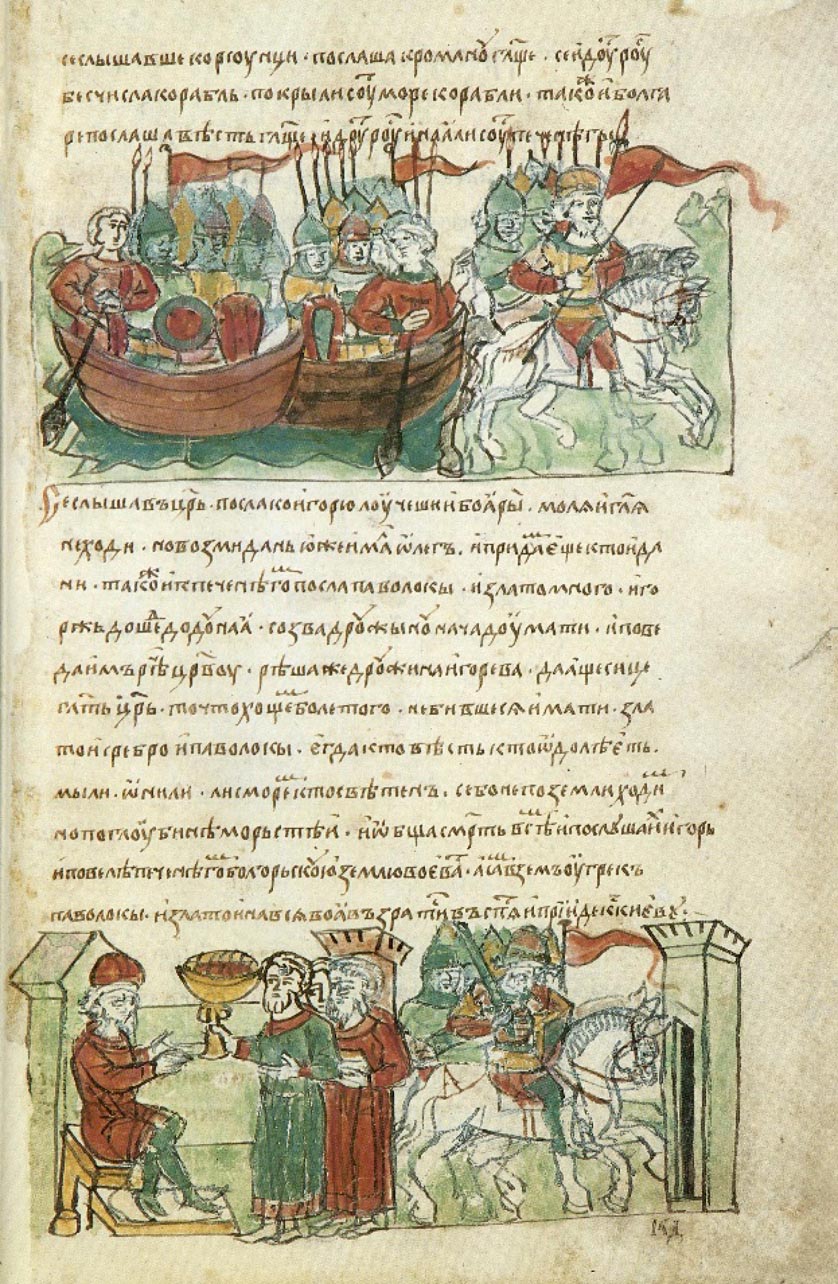 се слышавше корсоунци · послаша к романоу гл҃ще · се идоуⷮ роуⷭ
бес числа корабль · покрыли соуⷮ море корабли · такоⷤ и болга
ре послаша вѣсть гл҃ще · идоуⷮ роуⷭ и наꙗли соуⷮ печенѣгы
Се слышавъ цр҃ь · посла к игорю лоучешии боꙗры · молѧ и гл҃ѧ
не ходи · но возми дань юже имаⷧ ѡлегъ · и придаⷨ еще к тои да
ни · такоⷤ и к печенѣгоⷨ посла паволоки · и злата много · иго
рже дошеⷣ до доунаꙗ · созва дроужыноу нача доумати · и пове
да имъ рѣⷱ цр҃воу · рѣша же дроужина игорева · да аще сице
гл҃ть цр҃ь · то что хощеⷨ боле того · не бившесѧ имати · зла
то и сребро и паволокы · егда кто вѣсть кто ѡдолѣеть ·
мы ли · ѡни ли · ли с мореⷨ кто свѣтенъ · се бо не по земли ходиⷨ
но по глоубинѣ морьстѣи · и ѡбща смр҃ть всѣⷨ и послоуша иⷯ игорь
и повелѣ печенѣгоⷨ болгорьскоую землю воеваⷮ · а саⷨ вземъ оу грекъ
паволокы · и злато и на всѧ воꙗ възратиⷭ въспѧⷮ и прїиде къ киевоу ·